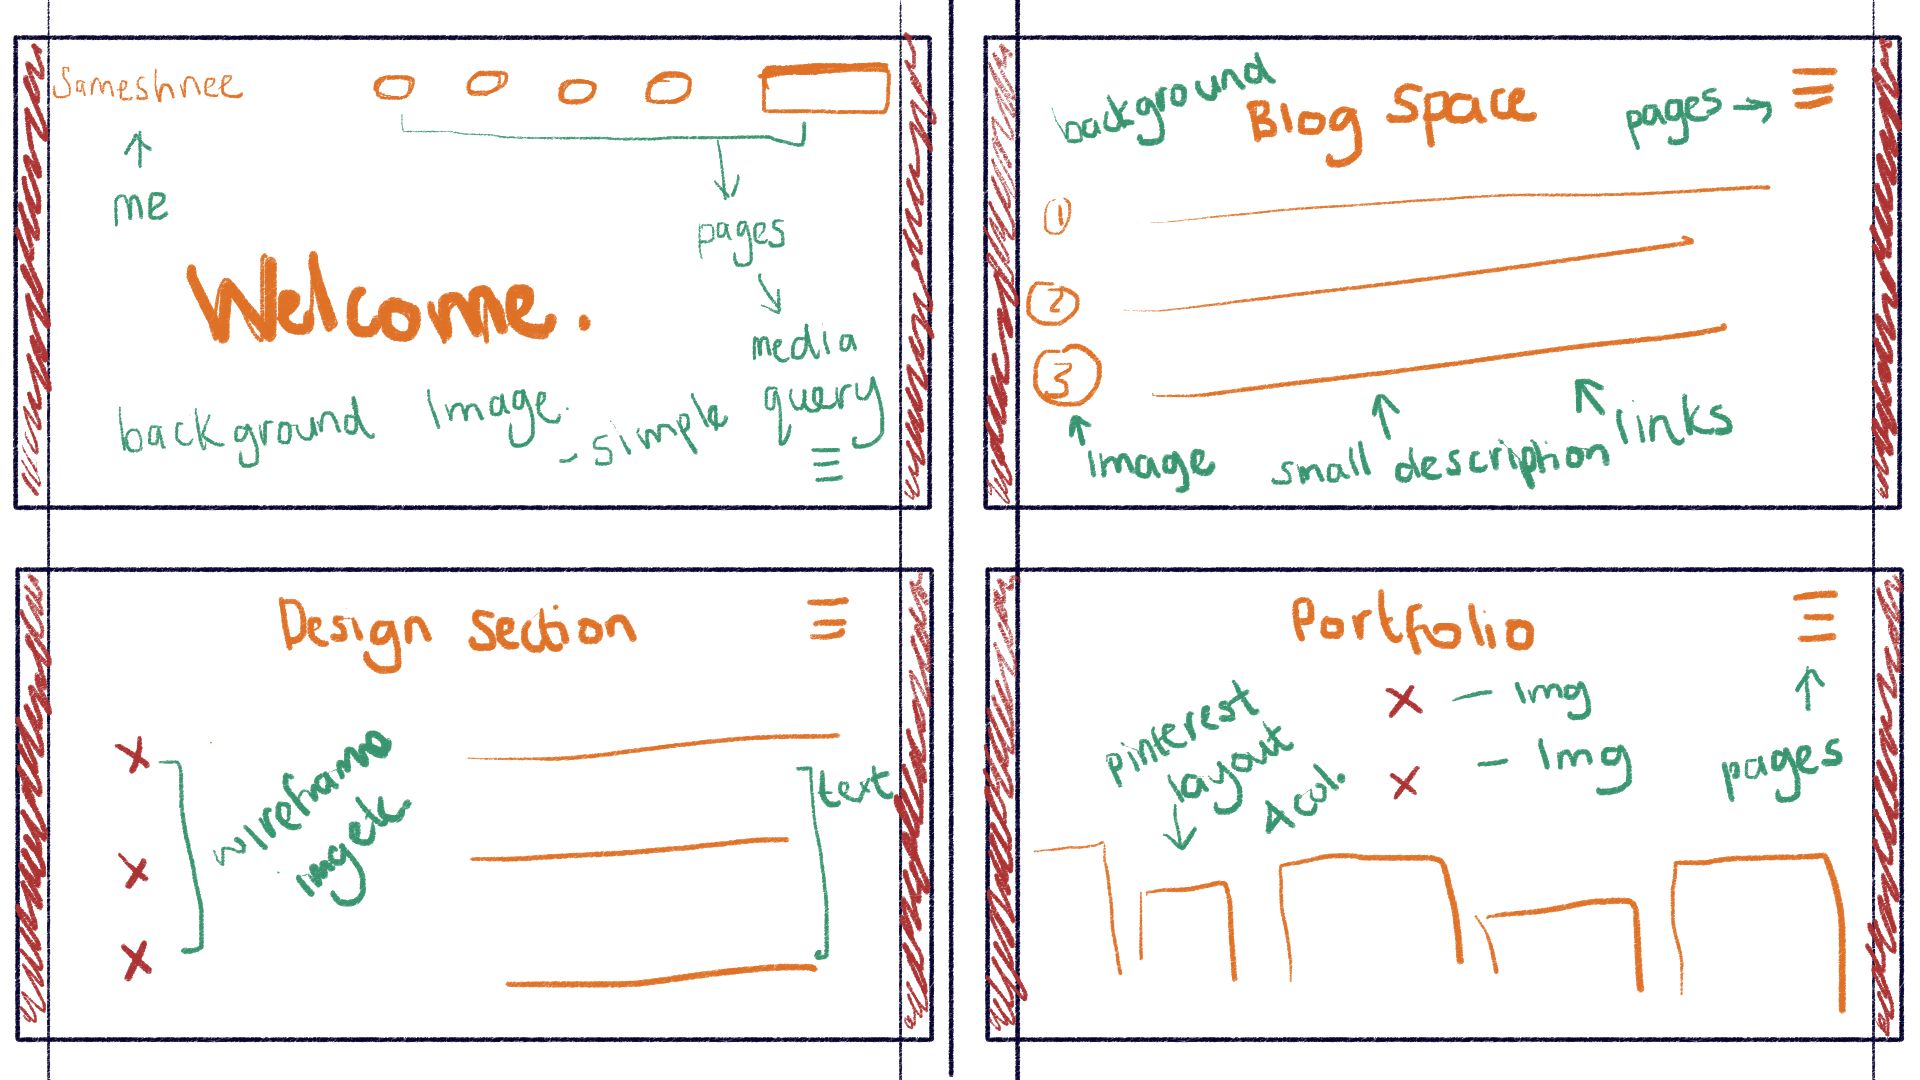 Sameshnee
me
pages
Welcome.
media
query
background Image
- simple
background
Blog Space
pages →
1
2
3
Image
small description
links
Design Section
wireframe
img etc
text
Portfolio
pinterest
layout
4 col.
- Img
- Img
pages